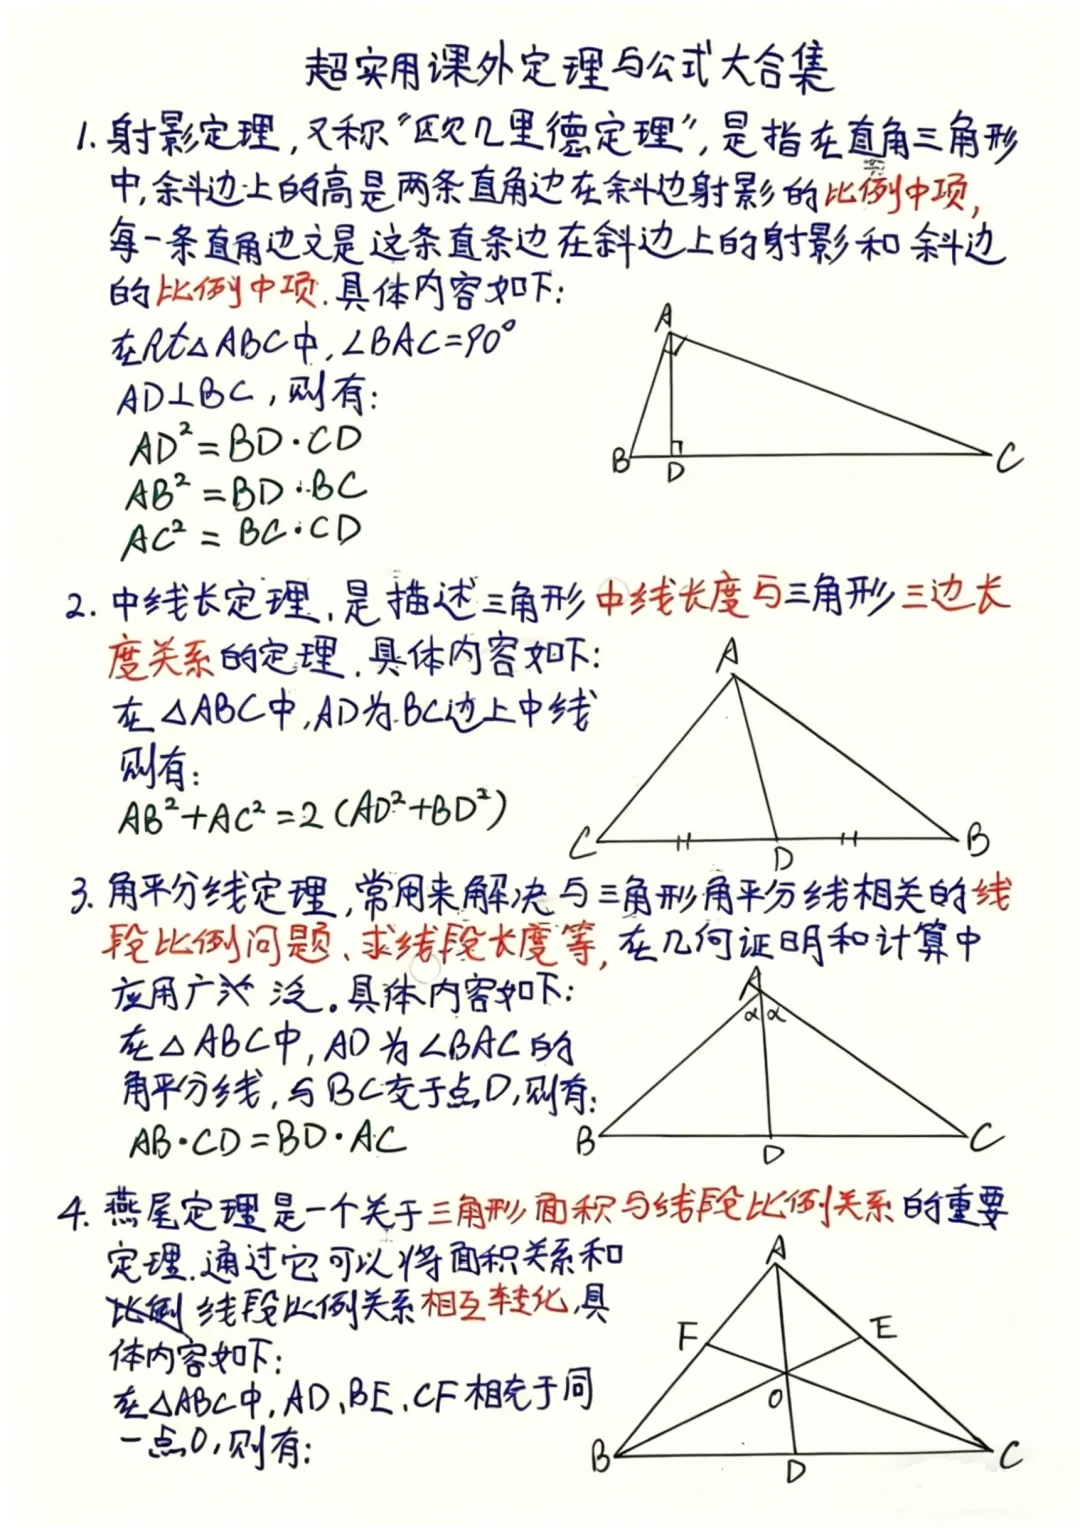 超实用课外定理与公式大合集
1. 射影定理,又称“欧几里德定理”,是指在直角三角形
中,斜边上的高是两条直角边在斜边射影的比例中项,
每一条直角边又是这条直条边在斜边上的射影和斜边
的比例中项.具体内容如下:
在Rt△ABC中,∠BAC=90°
AD⊥BC,则有:
AD²=BD·CD
AB²=BD·BC
AC²=BC·CD
A
B
D
C
2. 中线长定理,是描述三角形中线长度与三角形三边长
度关系的定理.具体内容如下:
在△ABC中,AD为BC边上中线
则有:
AB²+AC²=2(AD²+BD²)
A
C
D
B
3. 角平分线定理,常用来解决与三角形角平分线相关的线
段比例问题、求线段长度等,在几何证明和计算中
应用广泛。具体内容如下:
在△ABC中,AD为∠BAC的
角平分线,与BC交于点D,则有:
AB·CD=BD·AC
A
α α
B
D
C
4. 燕尾定理是一个关于三角形面积与线段比例关系的重要
定理.通过它可以将面积关系和
比例线段比例关系相互转化,具
体内容如下:
在△ABC中,AD、BE、CF相交于同
一点O,则有:
A
F
E
O
B
D
C